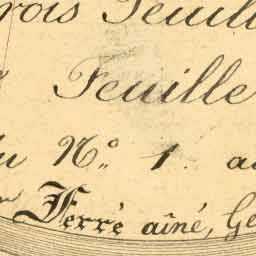 rois Feuill
Feuille
du Nº 1. au
Ferré aîné, Gé